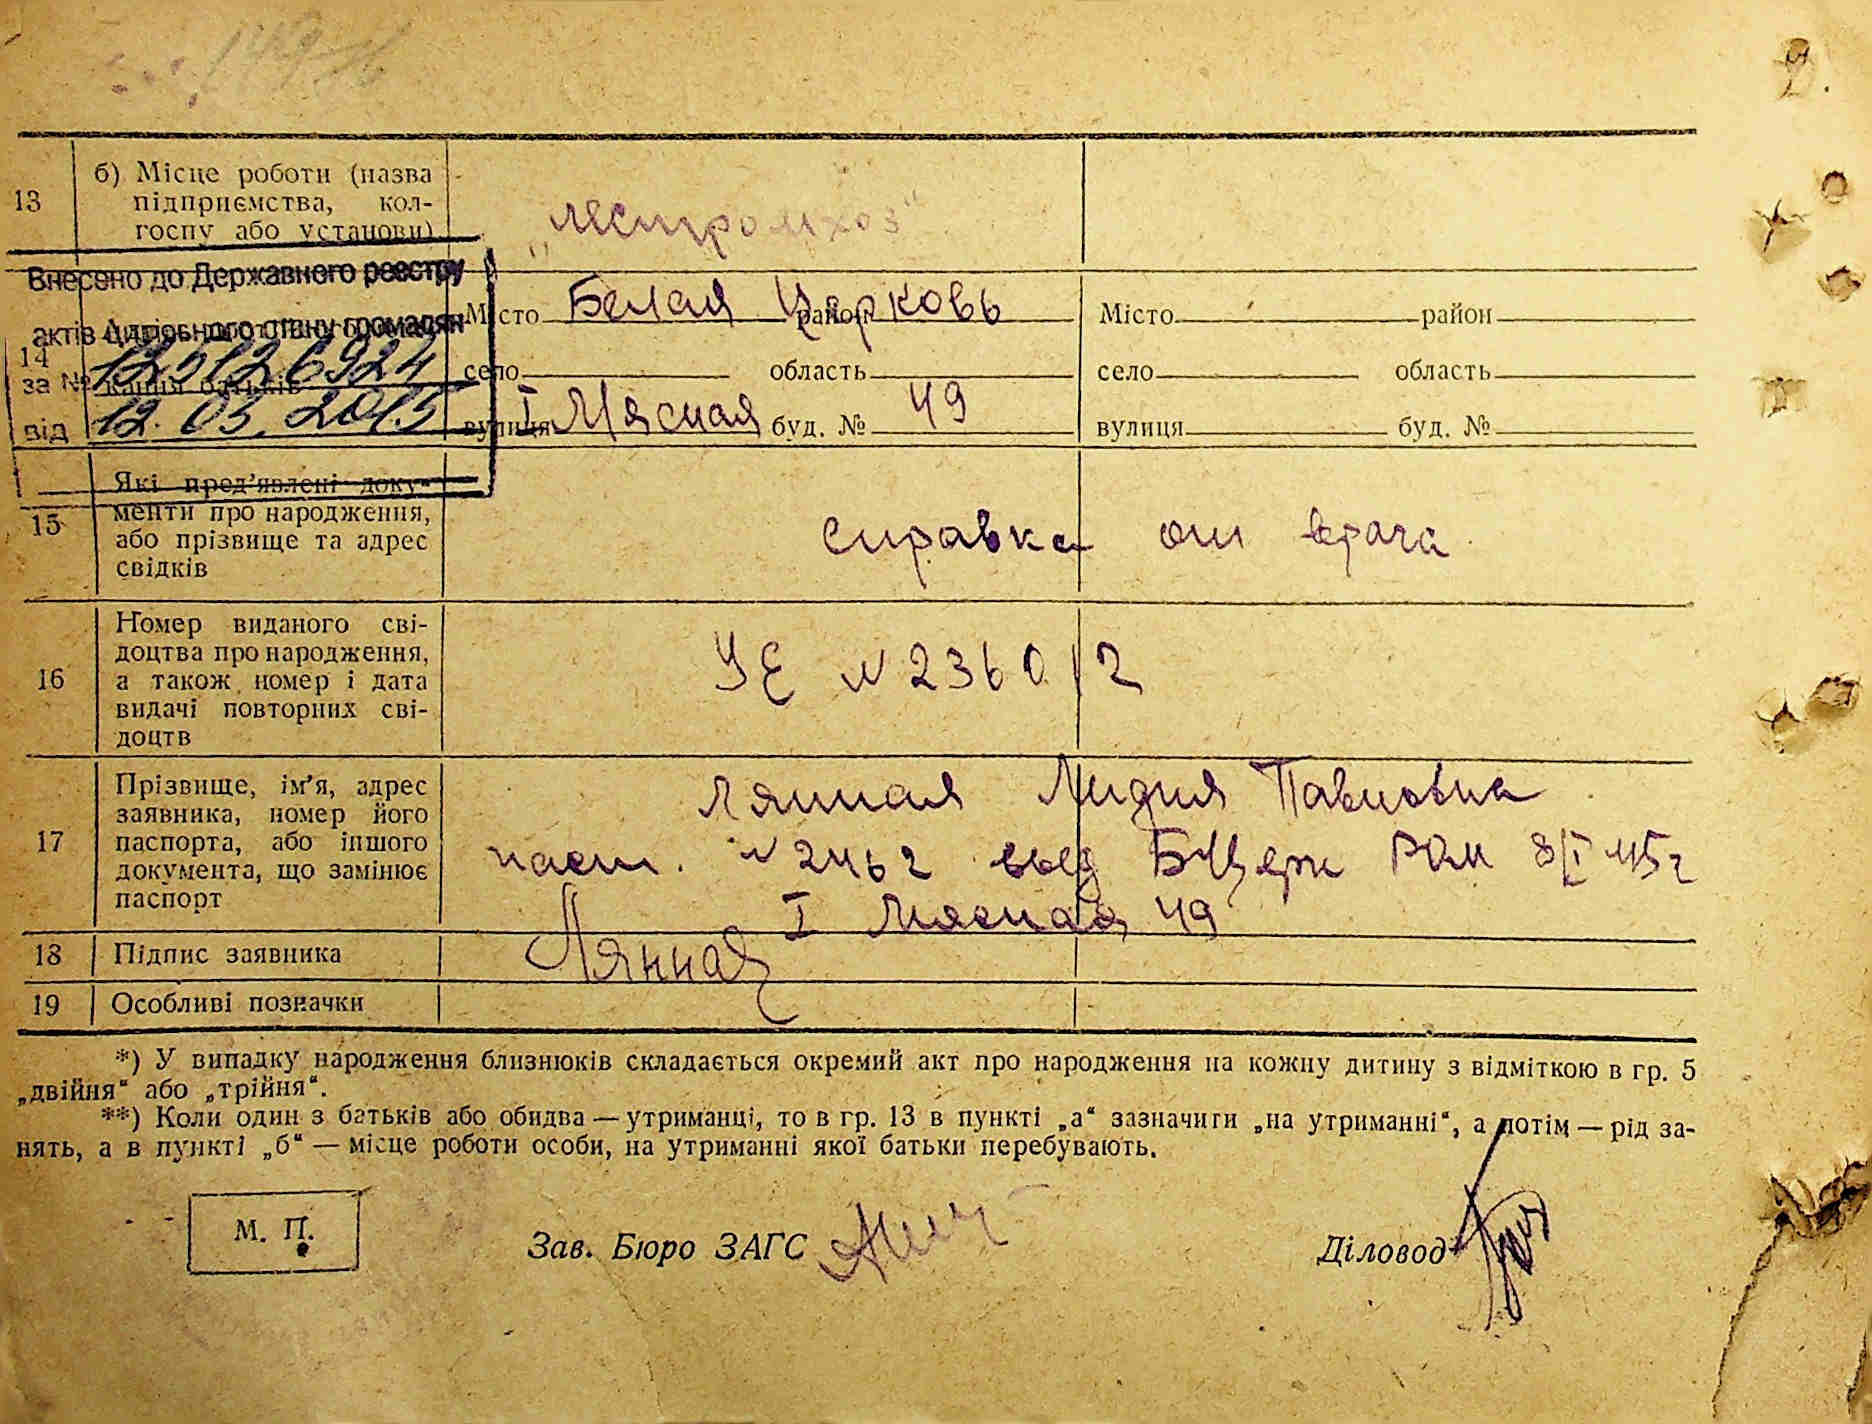 2.
13
б) Місце роботи (назва
підприємства, кол-
госпу або установи)
„Леспромхоз"
Внесено до Державного реєстру
актів цивільного стану громадян
за № 12012 6924
від 12. 03. 2015
14
Місто Белая Церковь район
село область
вулиця I Мясная буд. № 49
Місто район
село область
вулиця буд. №
15
Які пред'явлені доку-
менти про народження,
або прізвище та адрес
свідків
справка от врача
16
Номер виданого сві-
доцтва про народження,
а також номер і дата
видачі повторних сві-
доцтв
УЕ № 236012
17
Прізвище, ім'я, адрес
заявника, номер його
паспорта, або іншого
документа, що замінює
паспорт
Лянная Лидия Павловна
пасп. № 2462 выд БЦерк РОМ 8/I 45 г
I Мясная 49
18
Підпис заявника
Лянная
19
Особливі позначки
*) У випадку народження близнюків складається окремий акт про народження на кожну дитину з відміткою в гр. 5
„двійня“ або „трійня“.
**) Коли один з батьків або обидва — утриманці, то в гр. 13 в пункті „а“ зазначити „на утриманні“, а потім — рід за-
нять, а в пункті „б“ — місце роботи особи, на утриманні якої батьки перебувають.
М. П.
Зав. Бюро ЗАГС
Діловод